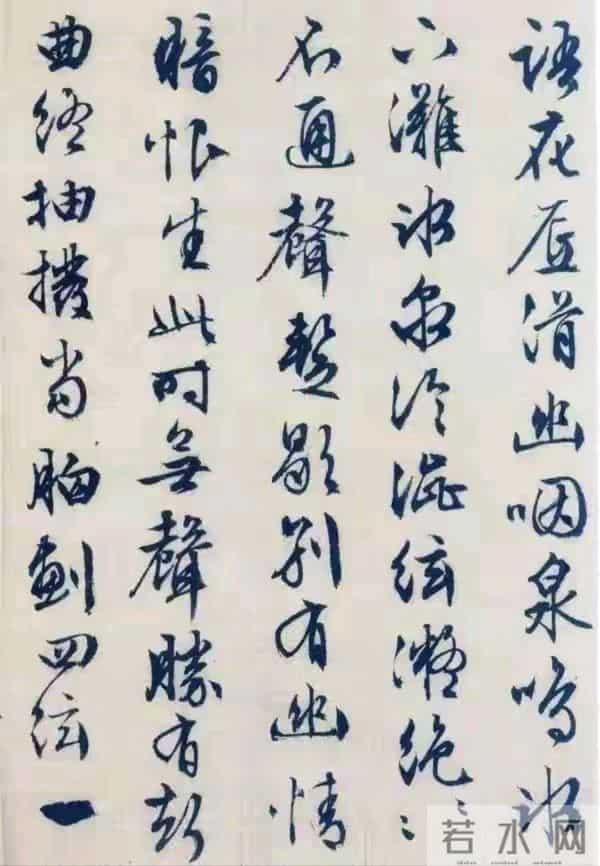 語花底滑幽咽泉鳴冰
下灘冰泉冷澀絃凝絕〻〻
不通聲暫歇別有幽情
暗恨生此時無聲勝有
曲終抽撥当胸劃四絃一
若水网